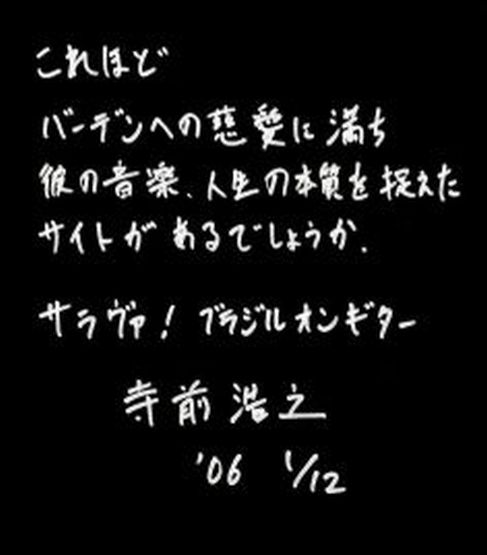 これほど
バーデンへの慈愛に満ち
彼の音楽、人生の本質を捉えた
サイトがあるでしょうか.
サラヴァ! ブラジルオンギター
寺前浩之
'06 1/12